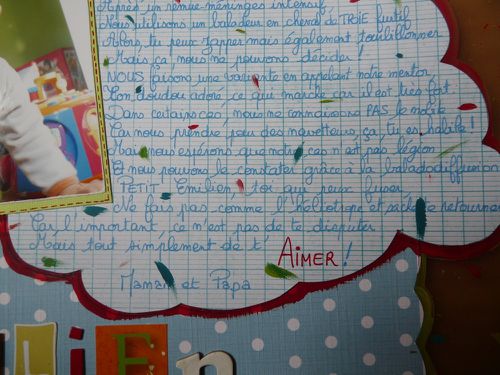 Après un remue-méninges intensif,
Nous utilisons un baladeur en cheval de TROIE furtif
Alors, tu peux zapper mais également tourbillonner
Mais ça nous ne pouvons décider!
NOUS faisons une variante en appelant notre mentor
Ton doudou adoré ce qui marche car il est très fort.
Dans certains cas, nous ne connaissons PAS le mobile
Car nous prendre pour des navetteurs, ça, tu es habile!
Mais nous espérons que notre cas n'est pas légion
Et nous pouvons le constater grâce à la baladodiffusion
PETIT Emilien, toi qui peux buser
Ne fais pas comme l'héliotrope et sache te retourner
Car l'important, ce n'est pas de te disputer
Mais tout simplement de t'
AIMER!
Maman et Papa
LIEn